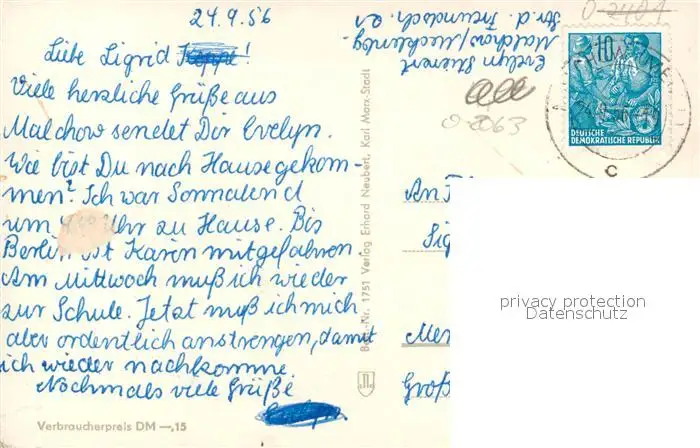 24.9.56
Liebe Sigrid !
Viele herzliche Grüße aus
Malchow sendet Dir Evelyn.
Wie bist Du nach Hause gekom-
men? Ich war Sonnabend
um Uhr zu Hause. Bis
Berlin ist Karin mitgefahren.
Am Mittwoch muß ich wieder
zur Schule. Jetzt muß ich mich
aber ordentlich anstrengen, damit
ich wieder nachkomme.
Nochmals viele Grüße
Verbraucherpreis DM —,15
Best.-Nr. 1751 Verlag Erhard Neubert, Karl Marx-Stadt
Evelyn
Malchow/Mecklenbg.
Str. d. Freundsch.
0-2401
0-2063
10
DEUTSCHE
DEMOKRATISCHE REPUBLIK
C
An
Sig
Me
Groß
privacy protection
Datenschutz